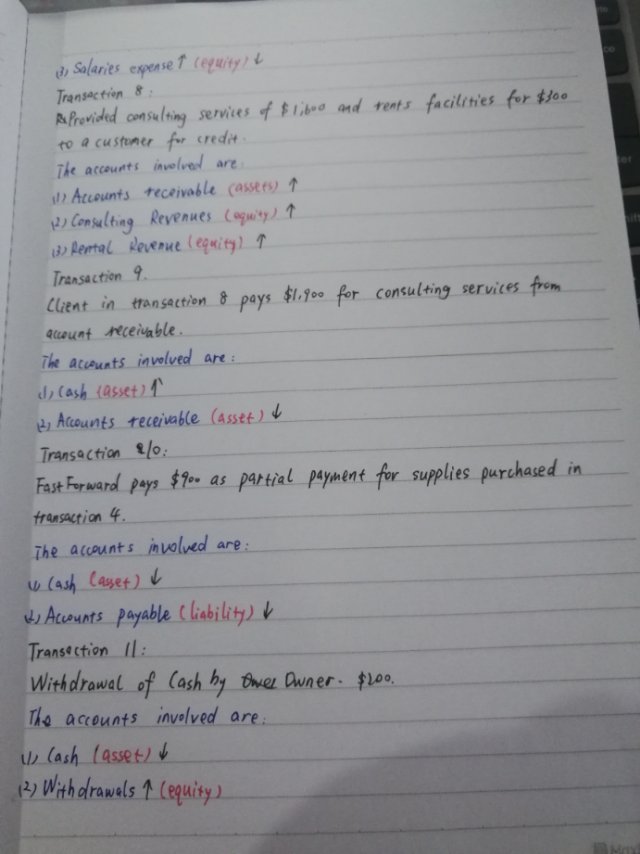 (3) Salaries expense ↑ (equity) ↓
Transaction 8:
Provided consulting services of $1,600 and rents facilities for $300
to a customer for credit.
The accounts involved are:
(1) Accounts receivable (assets) ↑
(2) Consulting Revenues (equity) ↑
(3) Rental Revenue (equity) ↑
Transaction 9.
Client in transaction 8 pays $1,900 for consulting services from
account receivable.
The accounts involved are:
(1) Cash (asset) ↑
(2) Accounts receivable (asset) ↓
Transaction 10:
FastForward pays $900 as partial payment for supplies purchased in
transaction 4.
The accounts involved are:
(1) Cash (asset) ↓
(2) Accounts payable (liability) ↓
Transaction 11:
Withdrawal of Cash by Owner. $200.
The accounts involved are:
(1) Cash (asset) ↓
(2) Withdrawals ↑ (equity)